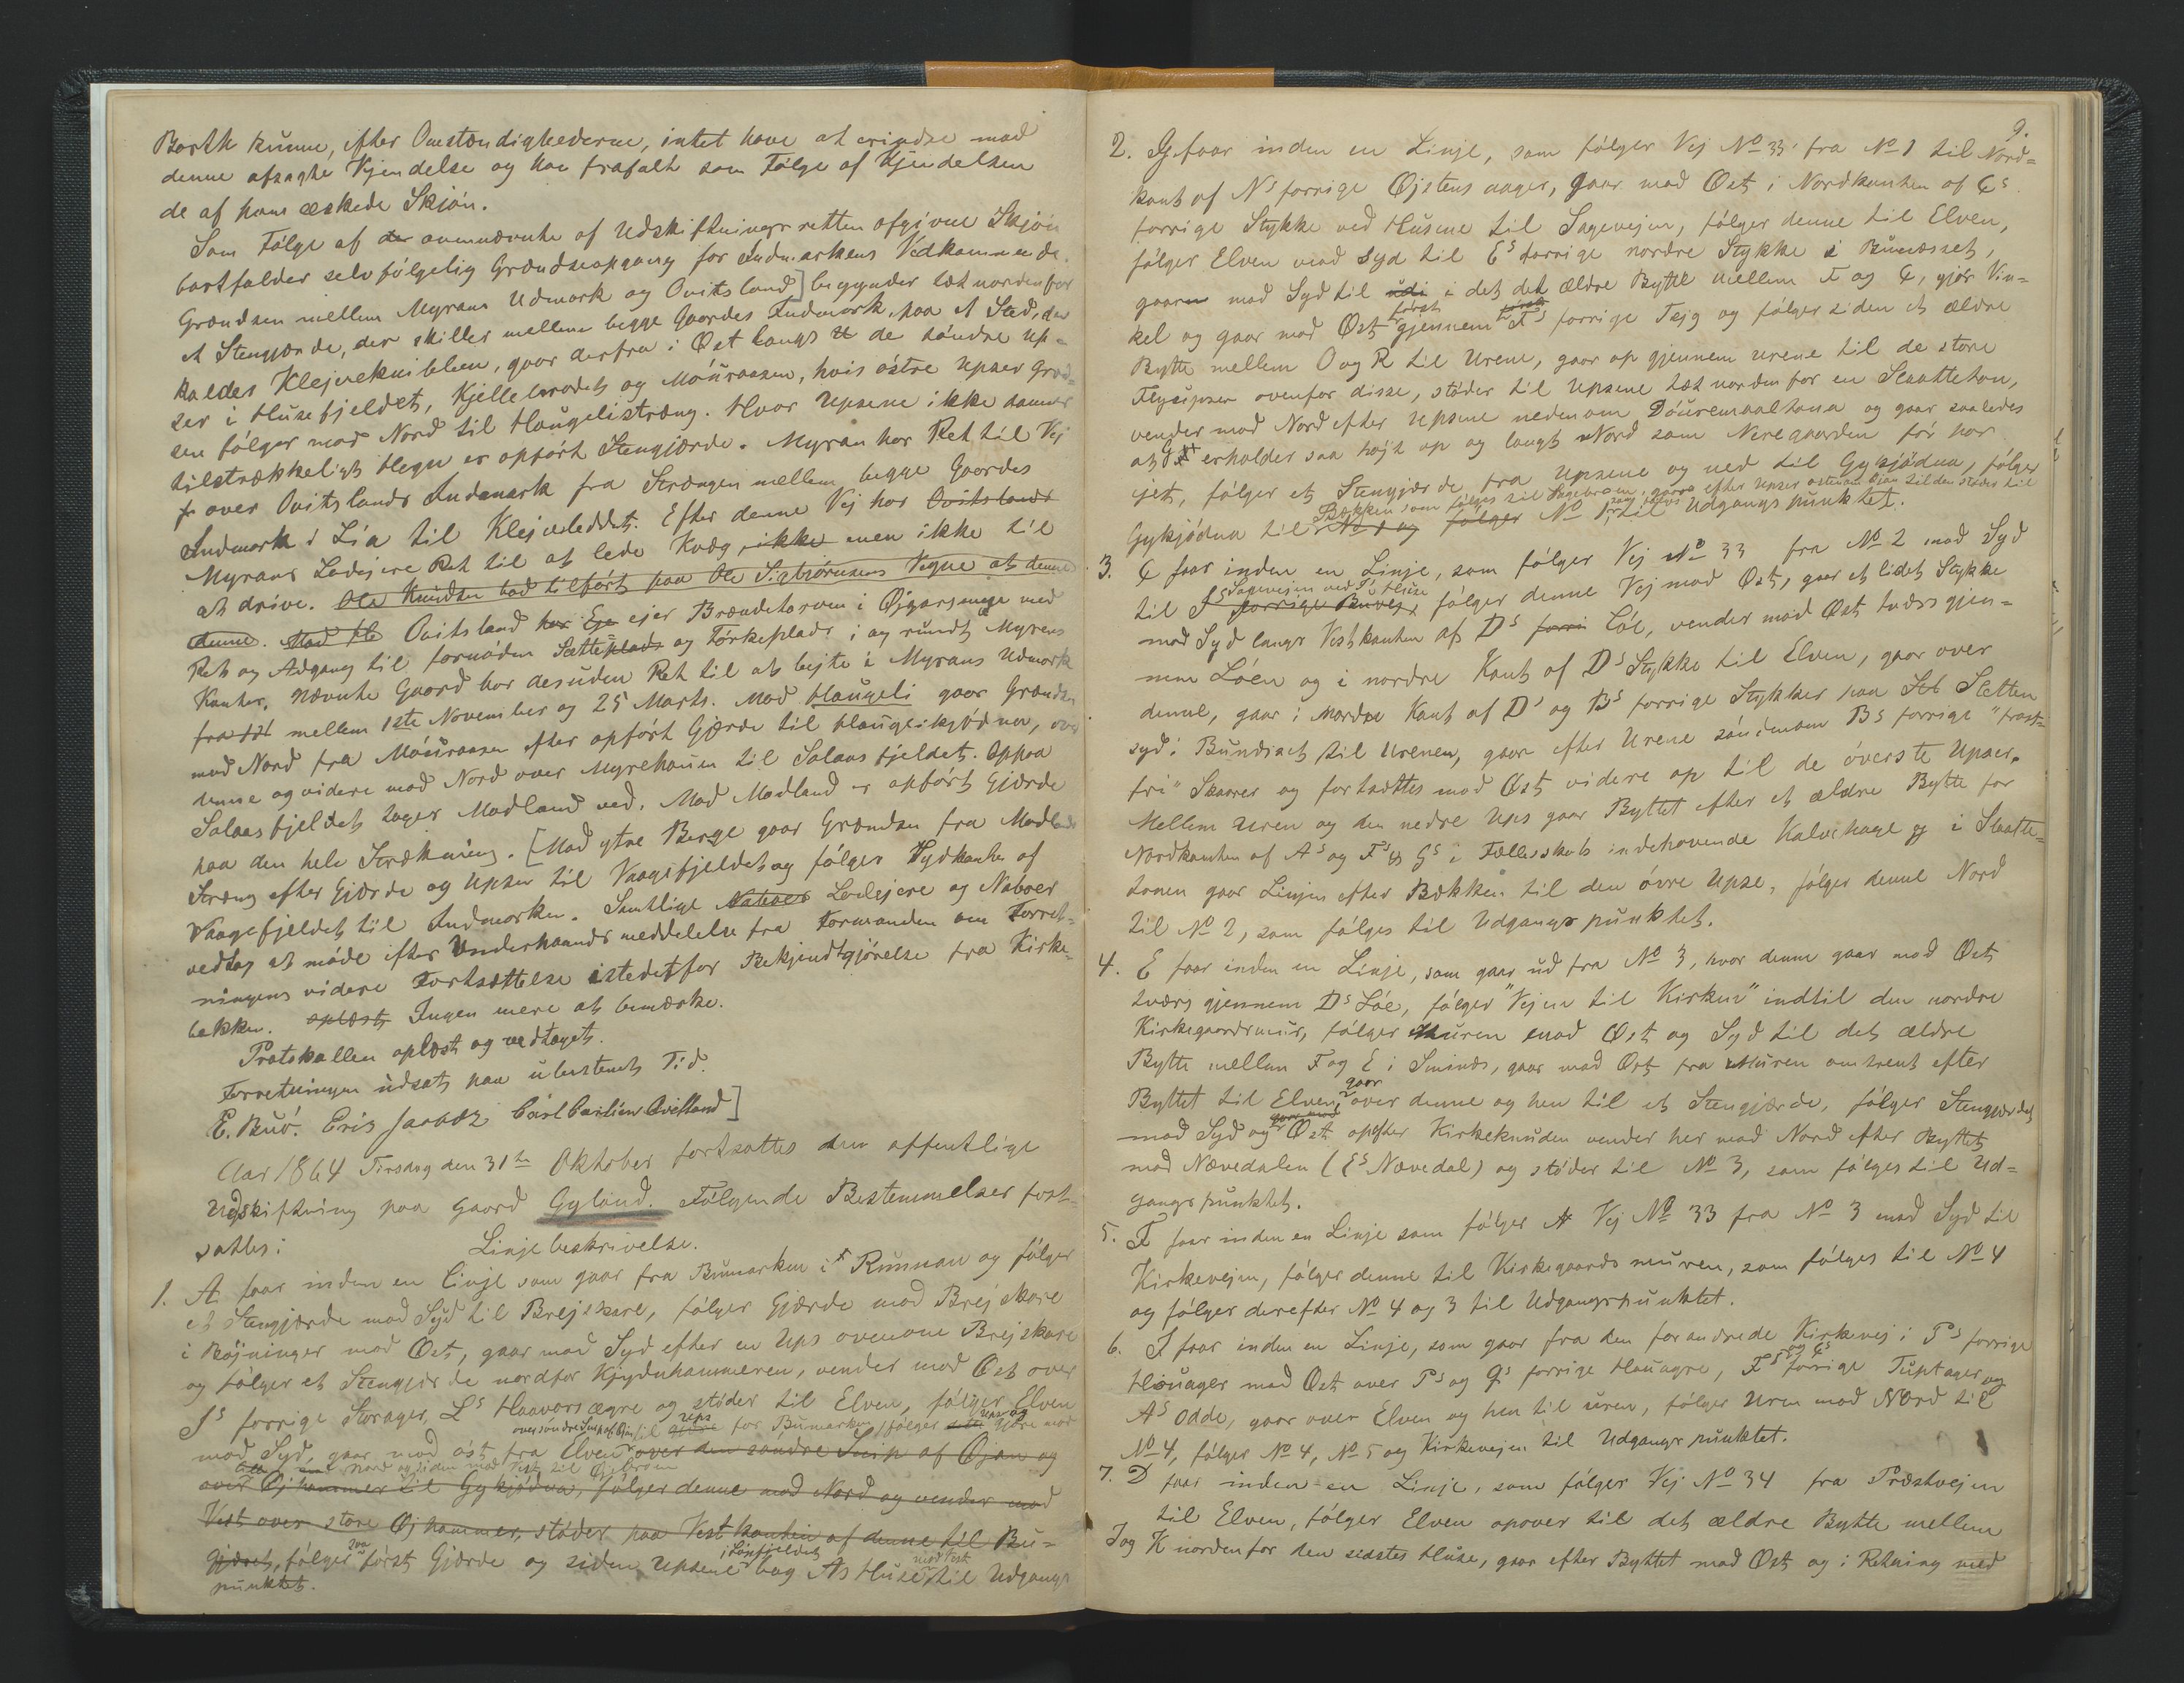 Barth kunne, efter Omstændighederne, intet have at erindre mod
denne afsagte Kjendelse og har frafalt som Følge af Kjendelsen
de af ham æskede Skjøn.
Som Følge af de ovennævnte af Udskiftningsretten afgivne Skjøn
bortfalder selvfølgelig Grændseopgang for Indmarkens Vedkommende.
Grændsen mellem Myrans Udmark og Ovitsland] begynder tæt nordenfor
et Stengjærde, der skiller mellem begge Gaardes Indmark, paa et Sted, der
kaldes Klejveknibben, gaar derfra i Øst langs de søndre Up-
ser i Husefjeldet, Kjellebrodet og Móúraasen, hvis østre Upser Grænd-
sen følger mod Nord til Haugelistræng. Hvor Upserne ikke danner
tilstrækkeligt Hegn er opført Stengjærde. Myran har Ret til Vej
fr over Ovitslands Indmark fra Strængen mellem begge Gaardes
Indmark i Lia til Klejveleddet. Efter denne Vej har Ovitslands
Myrans Lodejere Ret til at lede Kvæg, ikke men ikke til
at drive. Ole Knudsen bad tilført paa Ole Sigbjørnsens Vegne at denne
denne. Mod Ole Ovitsland har Eje ejer Brændetorven i Øjgarsmyr med
Ret og Adgang til fornøden Sætteplads og Tørkeplads i og rundt Myrens
Kanter. Nævnte Gaard har desuden Ret til at bejte i Myrans Udmark
fra 1st mellem 1ste November og 25 Marts. Mod Haugeli gaar Grændsen
mod Nord fra Móúraasen efter opført Gjærde til Haugelikjødnen, over
denne og videre mod Nord over Myrehauen til Salaasfjeldet. Oppaa
Salaasfjeldet tager Modland ved. Mod Modland er opført Gjærde
paa den hele Strækning. [Mod ytre Berge gaar Grændsen fra Modlands
Stræng efter Gjærde og Upser til Vaagefjeldet og følger Sydkanten af
Vaagefjeldet til Indmarken. Samtlige Naboer Lodejere og Naboer
vedtog at møde efter Underhaandsmeddelelse fra Formanden om Forret-
ningens videre Fortsættelse istedetfor Bekjendtgjørelse fra Kirke-
bakken. oplæst Ingen mere at bemærke.
Protokollen oplæst og vedtaget.
Forretningen udsat paa ubestemt Tid.
E. Buó. Eris Jaabæk Carl Casilius Ovitland]
Aar 1864 Tirsdag den 31te Oktober fortsattes den offentlige
Udskiftning paa Gaard Gyland. Følgende Bestemmelser fast-
sattes:
Linjebeskrivelse.
1. A faar inden en Linje som gaar fra Bumarken i Runnan og følger
et Stengjærde mod Syd til Brejskare, følger Gjærde mod Brejskare
i Bøjninger mod Øst, gaar mod Syd efter en Ups ovenom Brejskare
og følger et Stengjærde nordfor Kjydnhammeren, vender mod Øst over
Js forrige Storager, Ls Haavorsægre og støder til Elven, følger Elven
over søndre Snip af Øjan til Gjære Ups for Bumarken, følger Ups og Gjære mod
mod Syd, gaar mod øst fra Elven over den søndre Snip af Øjan og
Nord og siden mod Vest til
over Øjhammer til Gykjødna, følger denne mod Nord og vender mod
Vest over store Øjhammer, støder paa Vestkanten af denne til Bu-
gjæret, følger saa først Gjærde og siden Upsene i Lónfjeldet bag As Huse mod Vest til Udgangs
punktet.
9.
2. G faar inden en Linje, som følger Vej No 33 fra No 1 til Nord-
kant af Ns forrige Øjstens aager, gaar mod Øst i Nordkanten af Cs
forrige Stykke ved Husene til Sagevejen, følger denne til Elven,
følger Elven mod Syd til Es forrige nordre Stykke i Bunæsset,
gaar mod Syd til i det det ældre Bytte mellem F og C, gjør Vin-
kel og gaar mod Øst først gjennem Fs forrige Tejg og følger siden et ældre
Bytte mellem O og R til Urene, gaar op gjennem urene til de store
Flyupser ovenfor disse, støder til Upsene tæt norden for en Slaatteton,
vender mod Nord efter Upsene nedenom Dóuremaaltona og gaar saaledes
at G erholder saa højt op og langt Nord som Neregaarden før har
ejet, følger et Stengjærde fra Upsene og ned til Gykjødna, følger
Bækken som følges til Sagebroen, gaar efter Upser ostenom Øjan til den støder til
Gykjødna til No 1 og følger No 1, til Udgangspunktet.
3. C faar inden en Linje, som følger Vej No 33 fra No 2 mod Syd
Sagevejen ved Fs Huse
til Js forrige Buvej, følger denne Vej mod Øst, gaar et lidet Stykke
mod Syd langs Vestkanten af Ds forri Lóe, vender mod Øst tværs gjen-
nem Lóen og i nordre Kant af Ds Stykke til Elven, gaar over
denne, gaar i Nordre Kant af Ds og Bs forrige Stykker paa Set Sletten
syd i Bunæset til Urenen, gaar efter Urene søndenom Bs forrige "frost-
fri" Skaarer og fortsættes mod Øst videre op til de överste Upser.
Mellem Uren og den nedre Ups gaar Byttet efter et ældre Bytte for
Nordkanten af As og Fs og Gs i Fællesskab indehavende Kalvehage og i Slaatte-
tonen gaar Linjen efter Bækken til den övre Upse, følger denne Nord
til No 2, som følges til Udgangspunktet.
4. E faar inden en Linje, som gaar ud fra No 3, hvor denne gaar mod Øst
tværs gjennem Ds Lóe, følger "Vejen til Kirken" indtil den nordre
Kirkegaardsmur, følger Muren mod Øst og Syd til det ældre
Bytte mellem F og E i Sminæs, gaar mod Øst fra Muren omtrent efter
Byttet til Elven, gaar over denne og hen til et Stengjærde, følger Stengjærdet
mod Syd og Øst opefter Kirkeknuden vender her mod Nord efter Byttet
mod Nævedalen (Es Nævedal) og støder til No 3, som følges til Ud-
gangspunktet.
5. F faar inden en Linje som følger Vej No 33 fra No 3 mod Syd til
Kirkevejen, følger denne til Kirkegaardsmuren, som følges til No 4
og følger derefter No 4 og 3 til Udgangspunktet.
6. J faar inden en Linje, som gaar fra den forandrede Kirkevej i Ps forrige
Houager mod Øst over Ps og Gs forrige Houagre, Fs og Cs forrige Tuptager og
As Odde, gaar over Elven og hen til Uren, følger Uren mod Nord til
No 4, følger No 4, No 5 og Kirkevejen til Udgangspunktet.
7. D faar inden en Linje, som følger Vej No 34 fra Præstvejen
til Elven, følger Elven opover til det ældre Bytte mellem
J og K nordenfor den sidstes Huse, gaar efter Byttet mod Øst og i Retning med